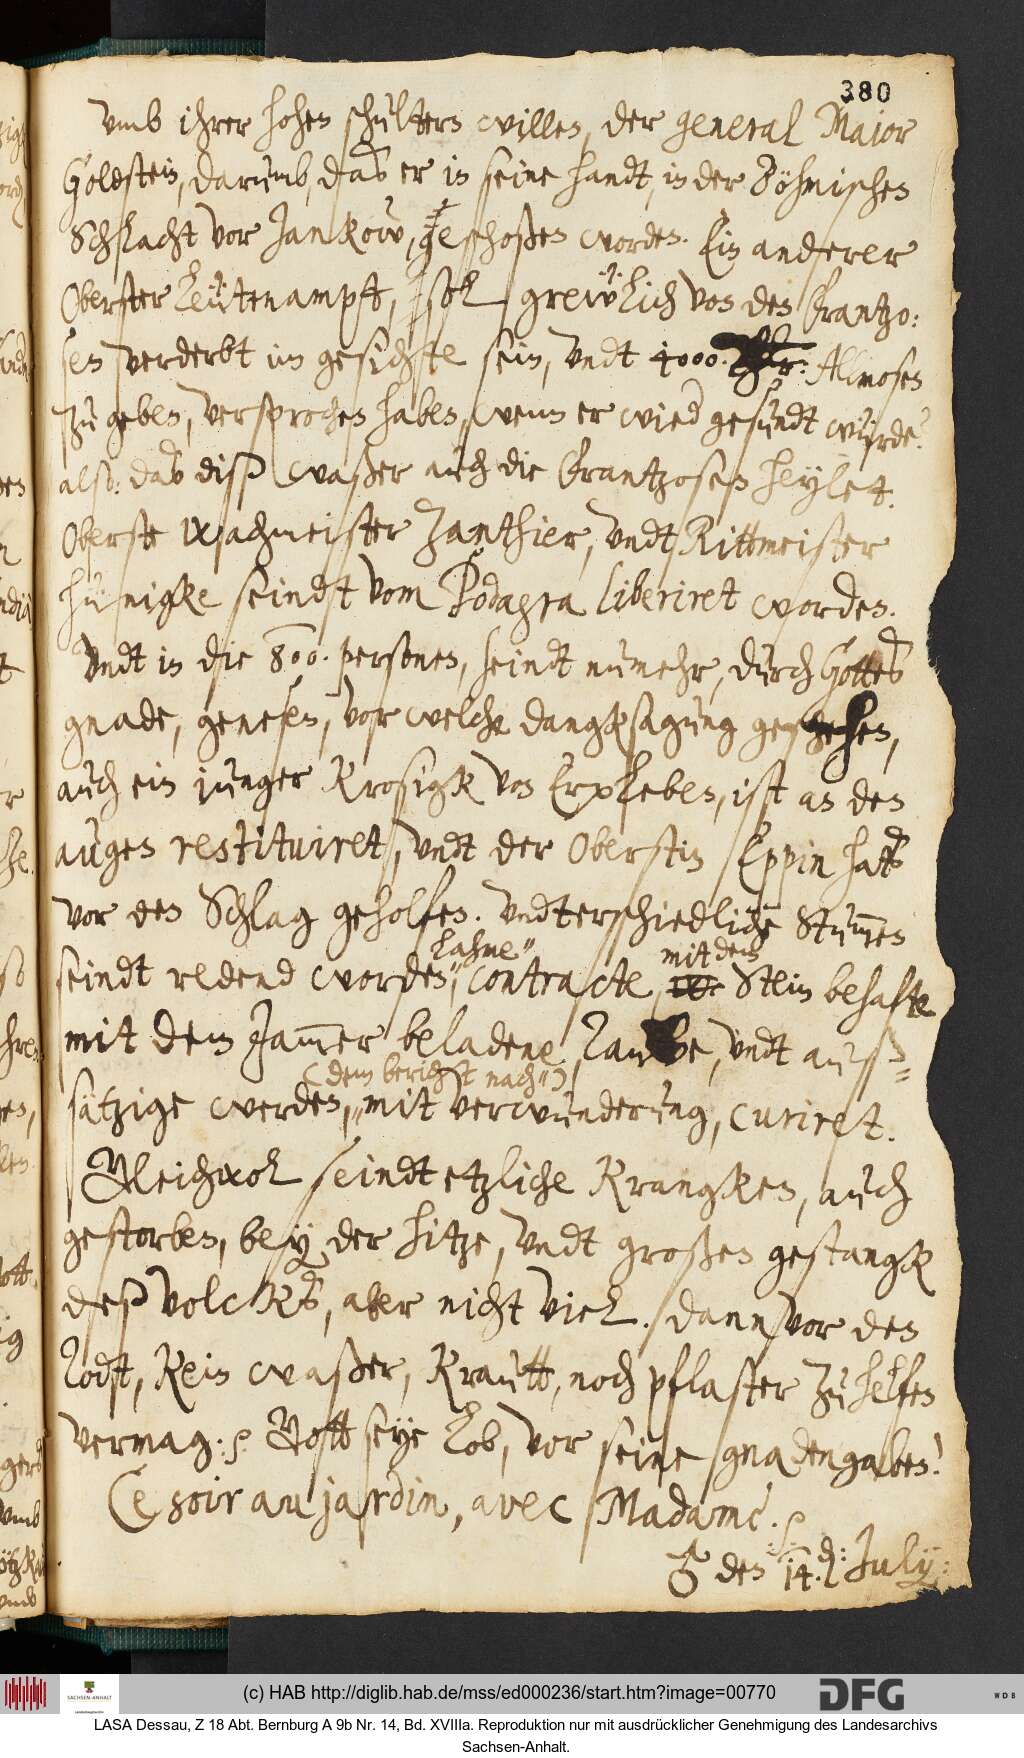 380
vmb ihrer hohen schultern willen, der general Major
Goldstein, darumb, das er in seine handt, in der Böhmischen
Schlacht vor Jankow, geschoßen worden. Ein anderer
Oberster Leütenampt, soll grewlich von den Frantzo:
sen verderbt im gesichte sein, vndt 4000 Thlr: Allmosen
zu geben, versprochen haben, wenn er wied gesundt würde.
also: das diß waßer auch die Frantzosen heylet.
Oberste Wachmeister Zanthier, vndt Rittmeister
Hünigke seindt vom Podagra liberiret worden.
Vndt in die 800. personen, seindt numehr, durch Gottes
gnade, genesen, vor welche dangksagung geschehen,
auch ein junger Krosigk von Erxleben, ist an den
augen restituiret, vndt der Oberstin Eppin hats
vor den Schlag geholfen. Vndterschiedliche Stummen
seindt redend worden, lahme, contracte, mit dem Stein behafte
mit dem Jammer beladene, Taube, vndt auß=
sätzige werden, (dem bericht nach) mit verwunderung, curiret.
Gleichwol seindt etzliche Krangken, auch
gestorben, bey der hitze, vndt großen gestangk
deß volcks, aber nicht viel. dann vor den
Todt, Kein waßer, Krautt, noch pflaster zu helfen
vermag. Gott seye Lob, vor seine gnadengaben!
Ce soir au jardin, avec Madame.
♂ den 14. d: July:
(c) HAB http://diglib.hab.de/mss/ed000236/start.htm?image=00770
SACHSEN-ANHALT
DFG
WDB
LASA Dessau, Z 18 Abt. Bernburg A 9b Nr. 14, Bd. XVIIIa. Reproduktion nur mit ausdrücklicher Genehmigung des Landesarchivs
Sachsen-Anhalt.